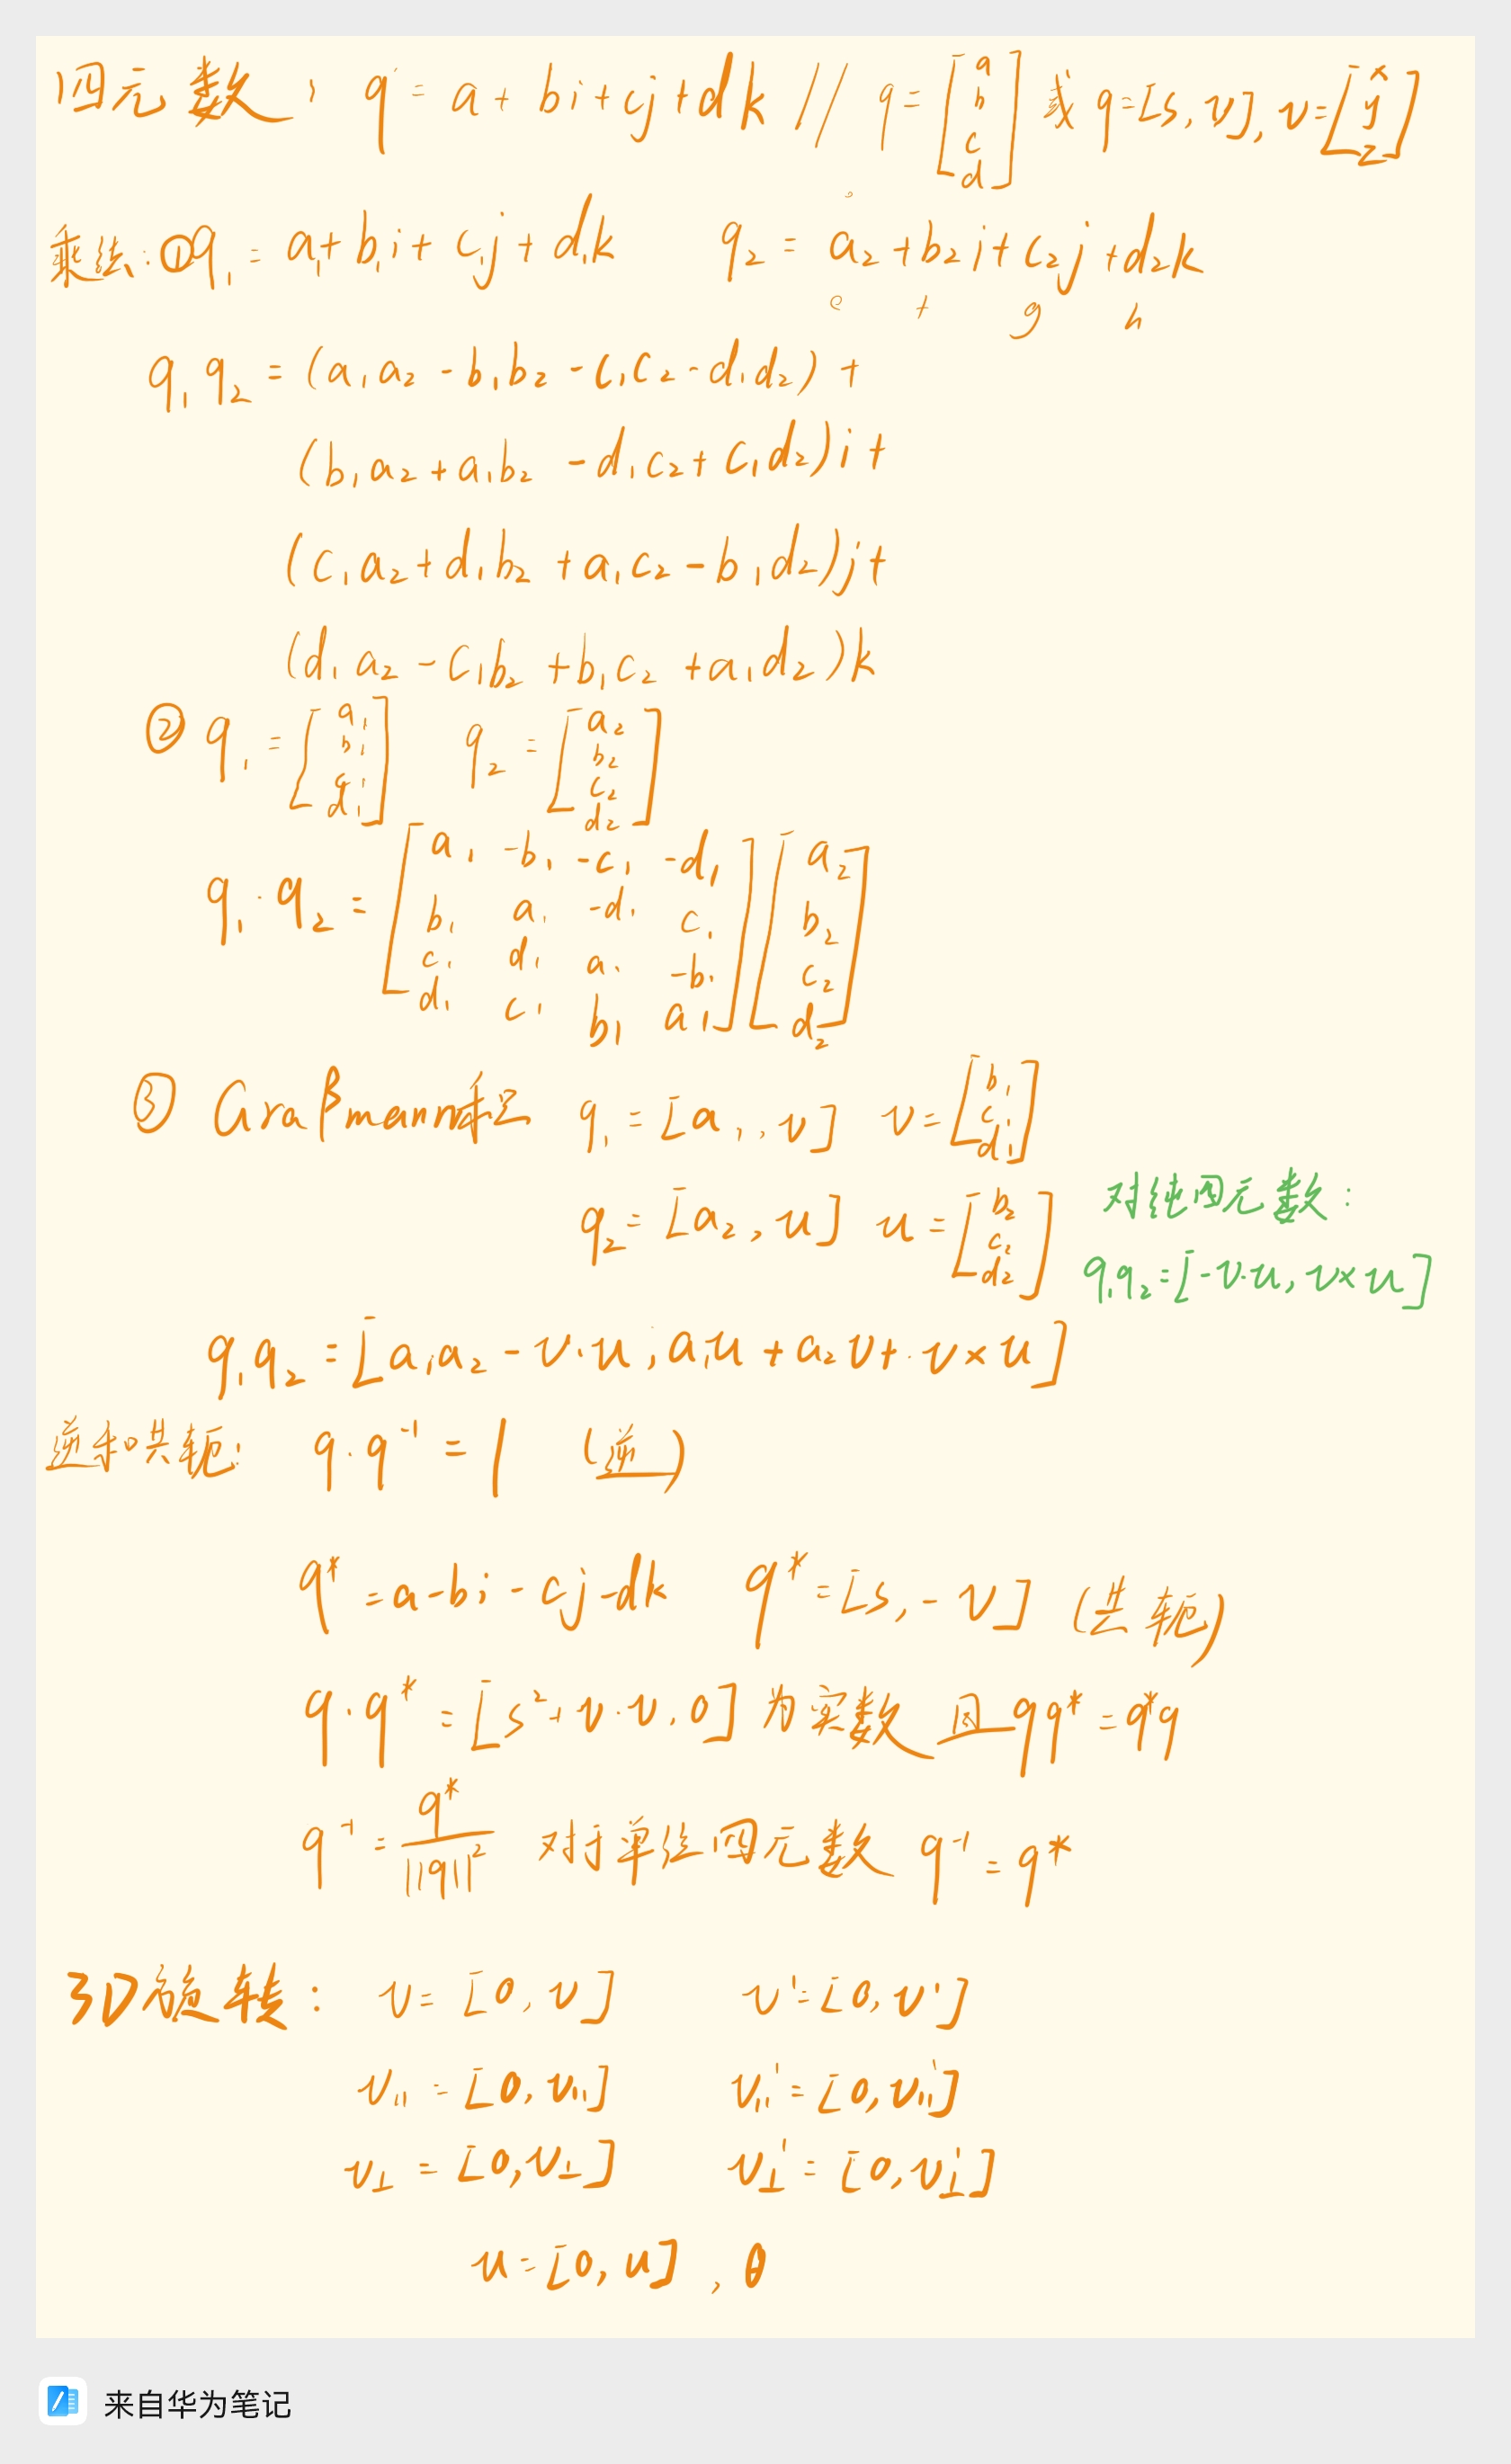 四元数: q = a + bi + cj + dk // q = [a b c d] 或 q=[s, v], v=[x y z]
乘法: ①q₁ = a₁+b₁i+c₁j+d₁k q₂ = a₂+b₂i+c₂j+d₂k
e + g h
q₁q₂ = (a₁a₂ - b₁b₂ - c₁c₂ - d₁d₂) +
(b₁a₂+a₁b₂ - d₁c₂+c₁d₂)i+
(c₁a₂+d₁b₂ +a₁c₂-b₁d₂)j+
(d₁a₂-c₁b₂+b₁c₂+a₁d₂)k
② q₁ = [a₁ b₁ c₁ d₁] q₂ = [a₂ b₂ c₂ d₂]
q₁·q₂ = [a₁ -b₁ -c₁ -d₁
b₁ a₁ -d₁ c₁
c₁ d₁ a₁ -b₁
d₁ c₁ b₁ a₁] [a₂ b₂ c₂ d₂]
③ Graβmann积 q₁ = [a₁, v] v=[b₁ c₁ d₁]
q₂=[a₂, u] u=[b₂ c₂ d₂]
对纯四元数:
q₁q₂=[-v·u, v×u]
q₁q₂=[a₁a₂-v·u, a₁u+a₂v+v×u]
逆和共轭: q·q⁻¹=1 (逆)
q*=a-bi-cj-dk q*=[s,-v] (共轭)
q·q*=[s²+v·v, 0] 为实数 且qq*=q*q
q⁻¹=q*/||q||² 对于单位四元数 q⁻¹=q*
3D旋转: v=[0, v] v'=[0, v']
v∥=[0, v∥] v∥'=[0, v∥']
v⊥=[0, v⊥] v⊥'=[0, v⊥']
u=[0, u], θ
来自华为笔记